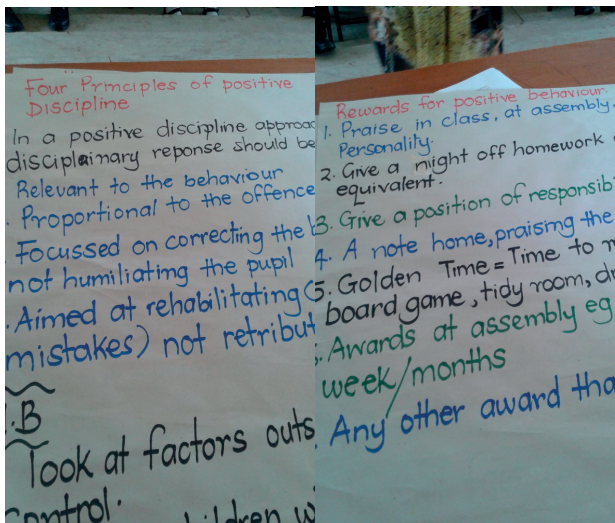 Four Principles of positive
DISCIPLINE
In a positive discipline approac
disciplainary reponse should be
Relevant to the behaviour
Proportional to the offence
Focussed on correcting the b
not humiliating the pupil
Aimed at rehabilitating (
mistakes) not retribut
.B
look at factors outs
control.
children w
Rewards for positive behaviour.
1. Praise in class, at assembly
Personality.
2. Give a night off homework
equivalent.
3. Give a position of responsib
4. A note home, praising the
5. Golden Time = Time to
board game, tidy room, dr
. Awards at assembly eg
week/months
. Any other award tha